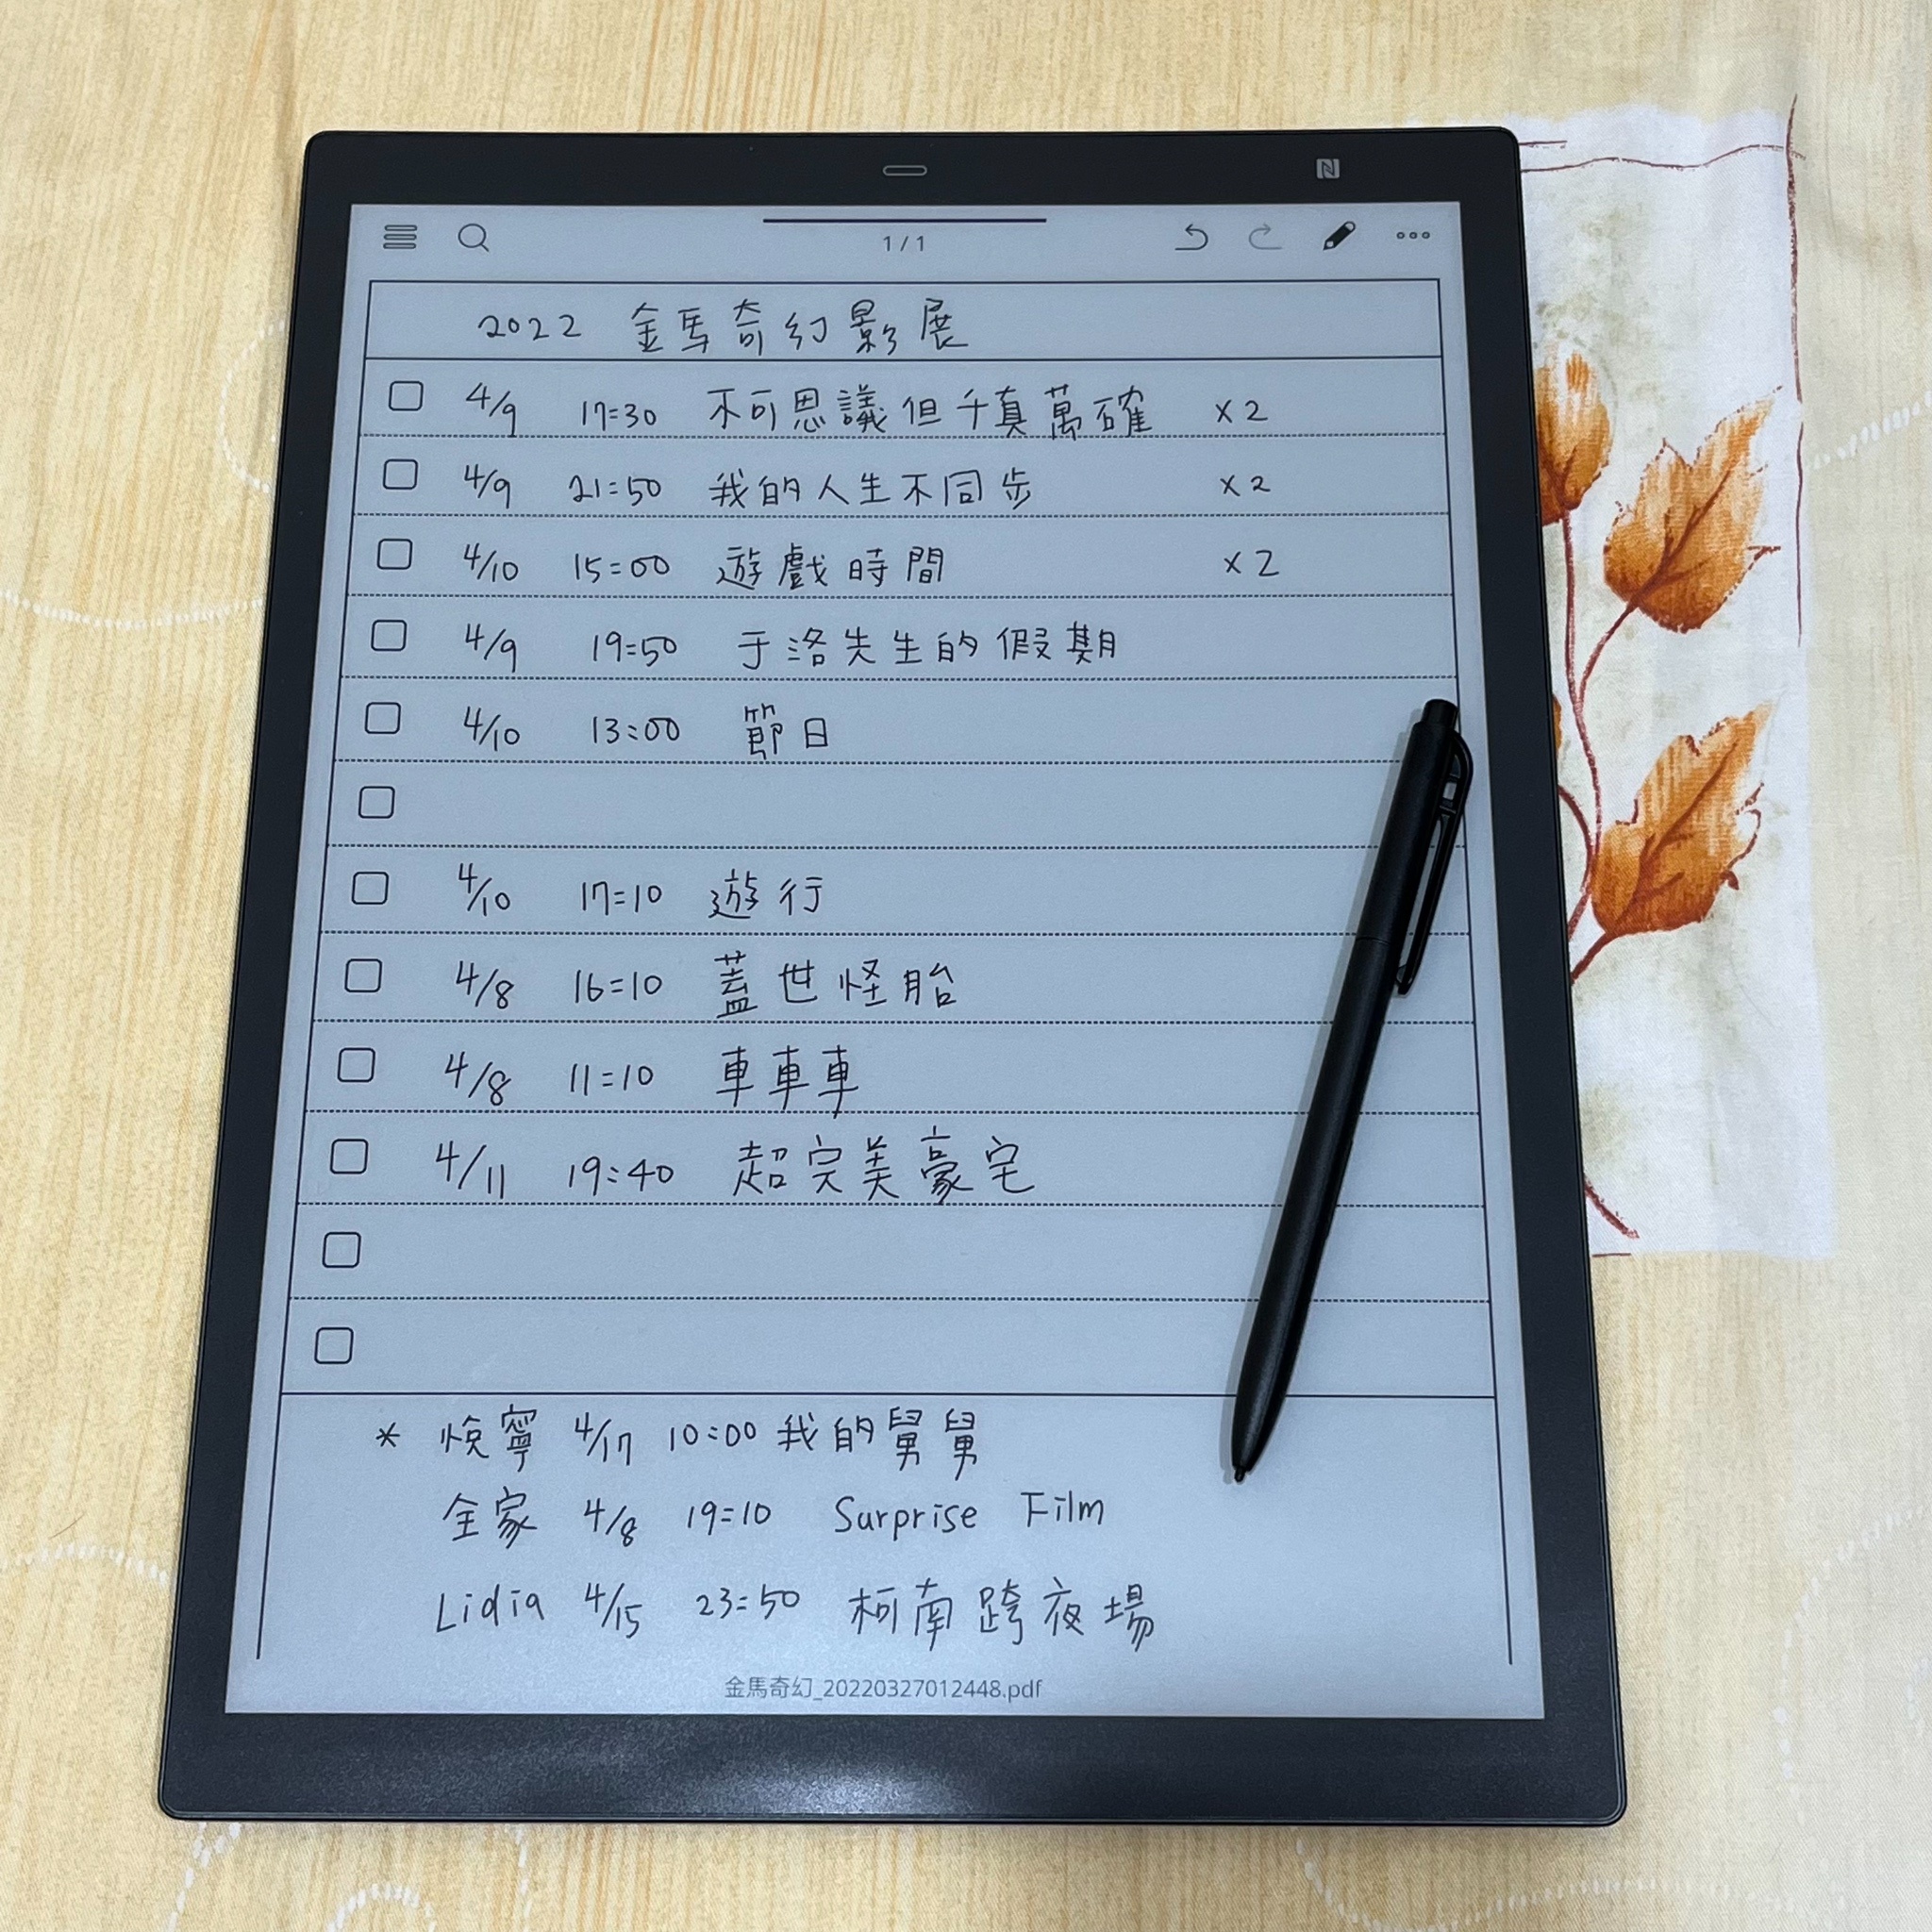 1 / 1
2022 金馬奇幻影展
4/9 17:30 不可思議但千真萬確 x2
4/9 21:50 我的人生不同步 x2
4/10 15:00 遊戲時間 x2
4/9 19:50 于洛先生的假期
4/10 13:00 節日
4/10 17:10 遊行
4/8 16:10 蓋世怪胎
4/8 11:10 車車車
4/11 19:40 超完美豪宅
* 悅寧 4/17 10:00 我的舅舅
全家 4/8 19:10 Surprise Film
Lidia 4/15 23:50 柯南跨夜場
金馬奇幻_20220327012448.pdf